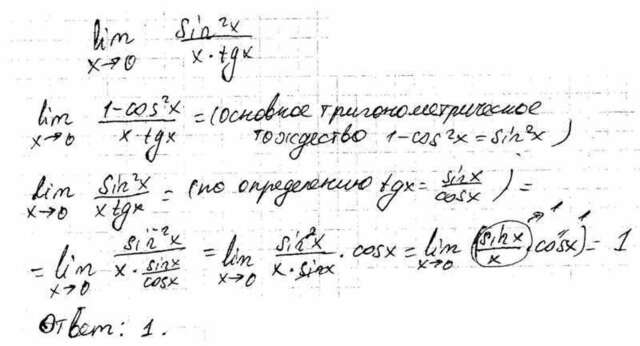 lim x→0 sin²x / (x · tgx)
lim x→0 (1-cos²x) / (x·tgx) = (основное тригонометрическое
тождество 1-cos²x = sin²x)
lim x→0 sin²x / (x tgx) = (по определению tgx = sinx / cosx) =
= lim x→0 sin²x / (x · sinx / cosx) = lim x→0 sin²x / (x · sinx) · cosx = lim x→0 (sinx / x →1 · cosx →1) = 1
Ответ: 1.